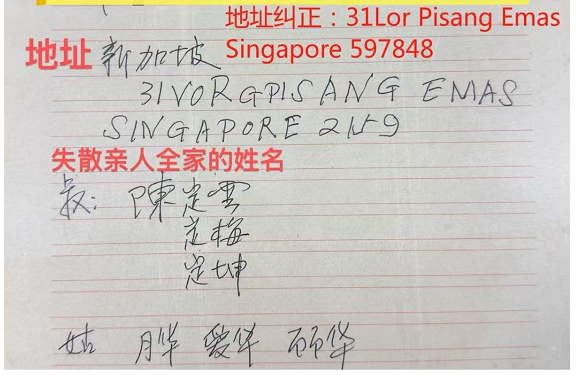 地址纠正：31Lor Pisang Emas
Singapore 597848
地址 新加坡
31VORGPISANG EMAS
SINGAPORE 2159
失散亲人全家的姓名
叔：陳定雲
定梅
定坤
姑 月华 爱华 顾华